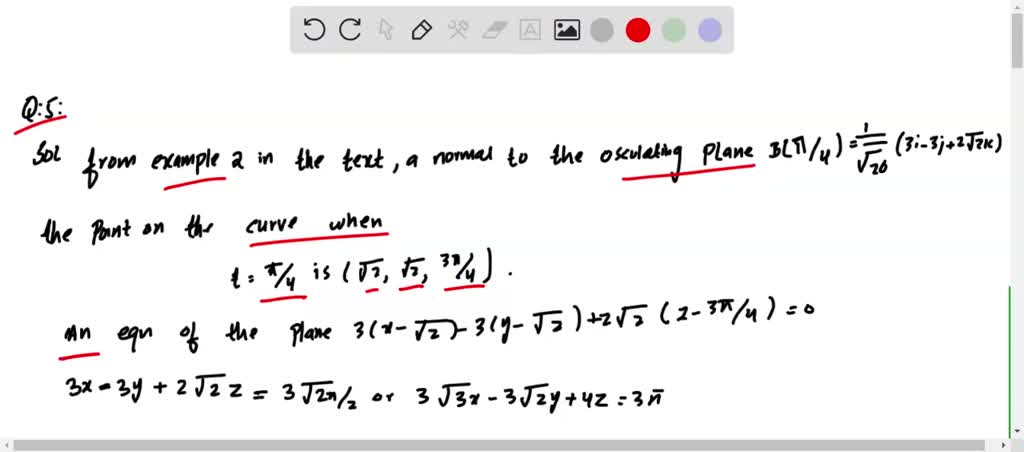 Q:5:
Sol from example 2 in the text, a normal to the osculating plane B(π/4) = 1/√26 (3i-3j+2√2k)
the point on the curve when
t = π/4 is (√2, √2, 3π/4).
An eqn of the plane 3(x-√2)-3(y-√2)+2√2 (z-3π/4)=0
3x-3y+2√2z = 3√2π/2 or 3√3x-3√2y+4z=3π